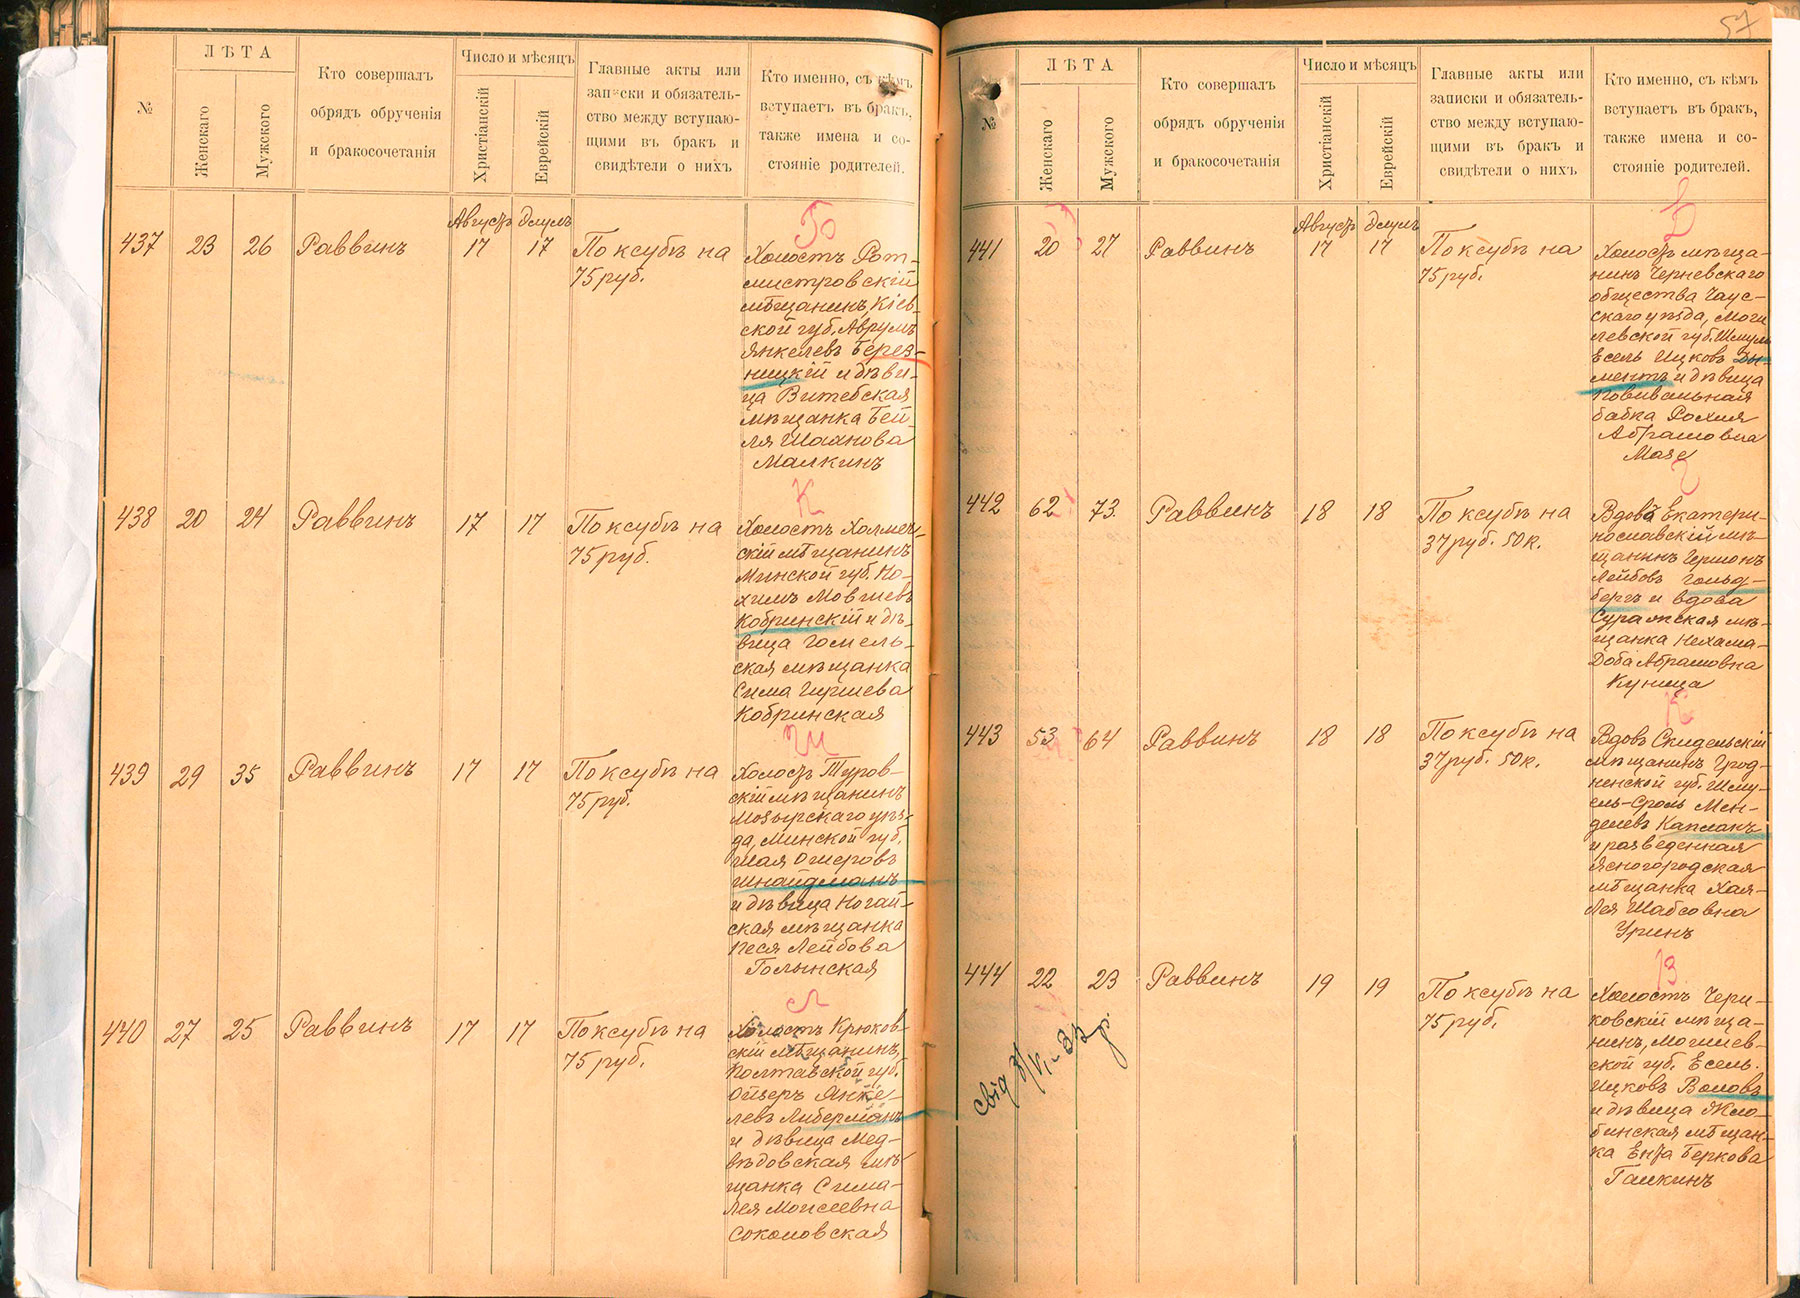 57
№
ЛѢТА
Женскаго
Мужского
Кто совершалъ
обрядъ обрученія
и бракосочетанія
Число и мѣсяцъ
Христіанскій
Еврейскій
Главные акты или
записки и обязатель-
ство между вступаю-
щими въ бракъ и
свидѣтели о нихъ
Кто именно, съ кѣмъ
вступаетъ въ бракъ,
также имена и со-
стояніе родителей.
437 23 26 Раввинъ
Августъ Элулъ
17 17
По ксубѣ на
75 руб.
Го
Холостъ Рот-
мистровскій
мѣщанинъ, Кіев-
ской губ. Аврумъ
Янкелевъ Берез-
ницкій и дѣви-
ца Витебская
мѣщанка Бей-
ля Шахнова
Малкинъ
438 20 24 Раввинъ 17 17
По ксубѣ на
75 руб.
К
Холостъ Холмеч-
скій мѣщанинъ
Минской губ. Но-
химъ Мовшевъ
Кобринскій и дѣ-
вица Гомель-
ская мѣщанка
Сима Гиршева
Кобринская
439 29 35 Раввинъ 17 17
По ксубѣ на
75 руб.
Холостъ Туров-
скій мѣщанинъ
Мозырскаго уѣз-
да, Минской губ.
Шая Ошеровъ
Шнайдманъ
и дѣвица Ногай-
ская мѣщанка
Песя Лейбова
Голынская
440 27 25 Раввинъ 17 17
По ксубѣ на
75 руб.
Л
Холостъ Крюков-
скій мѣщанинъ,
Полтавской губ.
Ойзеръ Янке-
левъ Либерманъ
и дѣвица Мед-
вѣдовская мѣ-
щанка Сима-
Лея Моисеевна
Соколовская
№
ЛѢТА
Женскаго
Мужского
Кто совершалъ
обрядъ обрученія
и бракосочетанія
Число и мѣсяцъ
Христіанскій
Еврейскій
Главные акты или
записки и обязатель-
ство между вступаю-
щими въ бракъ и
свидѣтели о нихъ
Кто именно, съ кѣмъ
вступаетъ въ бракъ,
также имена и со-
стояніе родителей.
441 20 27 Раввинъ
Августъ Элулъ
17 17
По ксубѣ на
75 руб.
Холостъ мѣща-
нинъ Черневскаго
общества Чаус-
скаго уѣзда, Моги
левской губ. Шмуль
Есель Ицковъ Ды
ментъ и дѣвица
Повивальная
бабка Рохля
Абрамовна
Мазе
442 62 73 Раввинъ 18 18
По ксубѣ на
37 руб. 50 к.
Вдовъ Екатери-
нославскій мѣ-
щанинъ Гершонъ
Лейбовъ Гольд-
бергъ и вдова
Суражская мѣ-
щанка Нехама-
Доба Абрамовна
Куница
443 53 64 Раввинъ 18 18
По ксубѣ на
37 руб. 50 к.
К
Вдовъ Скидельскій
мѣщанинъ Грод-
ненской губ. Шму-
ель-Сроль Мен-
делевъ Капланъ
и разведенная
Ясногородская
мѣщанка Хая-
Лея Шабсовна
Уринъ
444 22 23 Раввинъ 19 19
По ксубѣ на
75 руб.
В
Холостъ Чери-
ковскій мѣща-
нинъ, Могилев-
ской губ. Есель
Ицковъ Воловъ
и дѣвица Жло-
бинская мѣщан-
ка Ента Беркова
Галкинъ